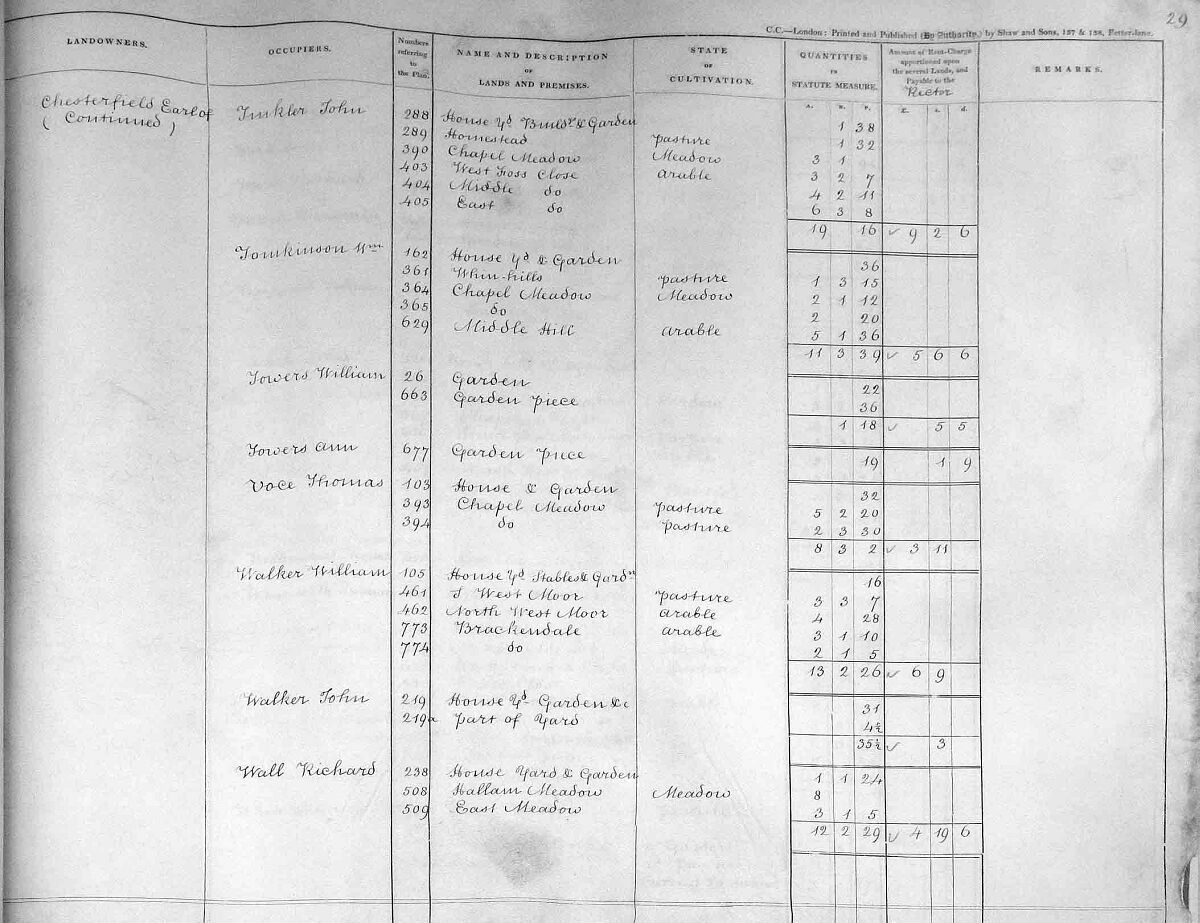 29
C.C.—London: Printed and Published (By Authority,) by Shaw and Sons, 137 & 138, Fetter-lane.
LANDOWNERS. OCCUPIERS. Numbers referring to the Plan. NAME AND DESCRIPTION OF LANDS AND PREMISES. STATE OF CULTIVATION. QUANTITIES IN STATUTE MEASURE. Amount of Rent-Charge apportioned upon the several Lands, and Payable to the Rector REMARKS.
A. R. P. £. s. d.
Chesterfield Earl of Tinkler John 288 House Yd Build.gs & Garden 1 38
(Continued) 289 Homestead pasture 1 32
390 Chapel Meadow Meadow 3 1
403 West Foss Close arable 3 2 7
404 Middle do 4 2 11
405 East do 6 3 8
19 16 9 2 6
Tomkinson Wm 162 House Yd & Garden 36
361 Whin-hills pasture 1 3 15
364 Chapel Meadow Meadow 2 1 12
365 do 2 20
629 Middle Hill arable 5 1 36
11 3 39 5 6 6
Towers William 26 Garden 22
663 Garden piece 36
1 18 5 5
Towers Ann 677 Garden piece 19 1 9
Voce Thomas 103 House & Garden 32
393 Chapel Meadow pasture 5 2 20
394 do pasture 2 3 30
8 3 2 3 11
Walker William 105 House Yd Stables & Gardn 16
461 S West Moor pasture 3 3 7
462 North West Moor arable 4 28
773 Brackendale arable 3 1 10
774 do 2 1 5
13 2 26 6 9
Walker John 219 House Yd Garden &c 31
219a part of Yard 4½
35½ 3
Wall Richard 238 House Yard & Garden 1 1 24
508 Hallam Meadow Meadow 8
509 East Meadow 3 1 5
12 2 29 4 19 6